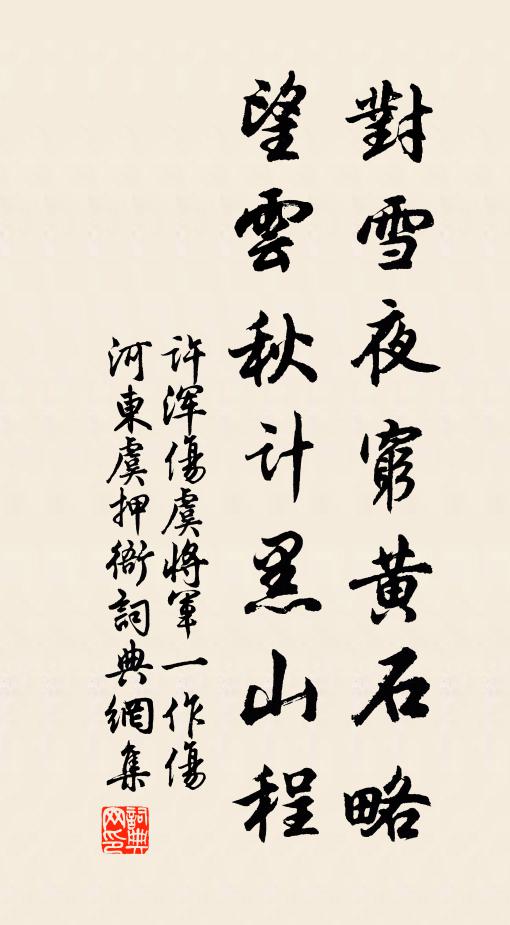 對雪夜窮黃石略
望雲秋計黑山程
許渾傷虞將軍一作傷
河東虞押衙詞典網集
詞典
网印